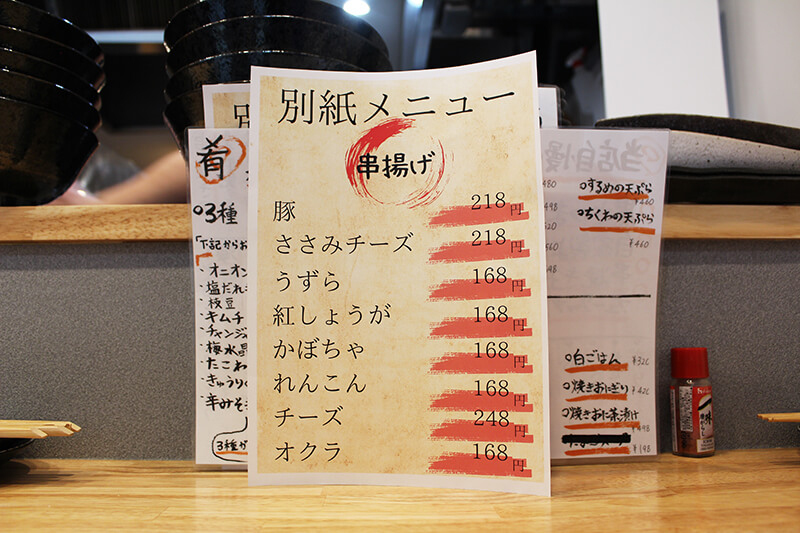 別紙メニュー
串揚げ
豚 218円
ささみチーズ 218円
うずら 168円
紅しょうが 168円
かぼちゃ 168円
れんこん 168円
チーズ 248円
オクラ 168円
肴
3種
「下記からお
・オニオン
・塩だれ
・枝豆
・キムチ
・チャンジ
・梅水晶
・たこわ
・きゅうり
・辛みそ
3種か
当店自慢
するめの天ぷら
¥460
ちくわの天ぷら
¥460
白ごはん
¥320
焼きおにぎり
¥420
焼きおに茶漬け
¥498
¥198